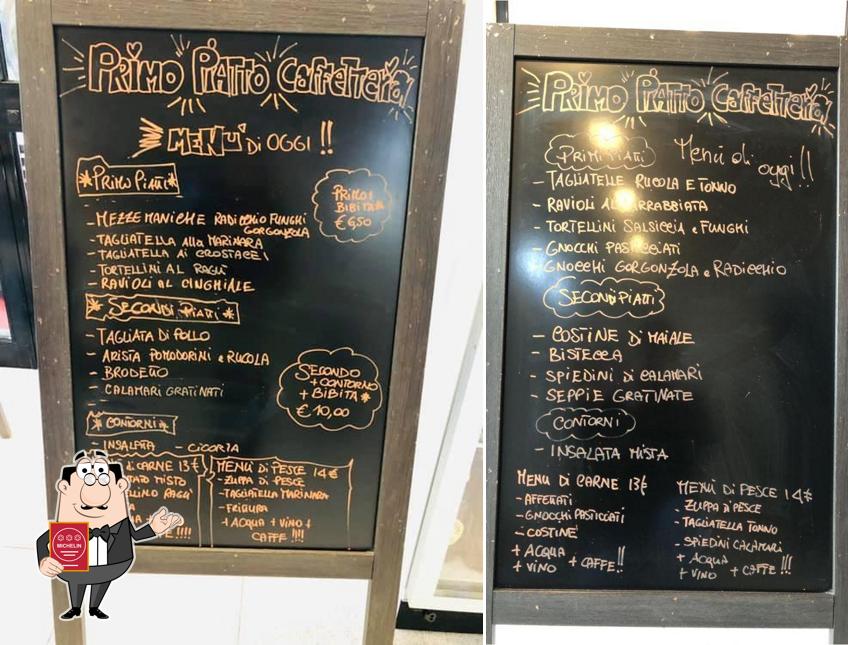 PRIMO PIATTO CAFFETTERIA
MENU' Di OGGI !!
*PRIMO PIATTI*
PRIMO+
BIBITA*
€ 6,50
- MEZZE MANICHE RADICCHIO FUNGHI
GORGONZOLA
- TAGLIATELLA alla MARINARA
- TAGLIATELLA Ai CROSTACEI
- TORTELLINI AL RAGU'
- RAVIOLI AL CINGHIALE
* SECONDI PIATTI *
- TAGLIATA DI POLLO
- ARISTA POMODORINI e RUCOLA
- BRODETTO
- CALAMARI GRATINATI
-
SECONDO
+ CONTORNO
+ BIBITA *
€ 10,00
* CONTORNI *
- INSALATA - CICORIA
di CARNE 13€
MISTO
RAGU'
!!!!
MENU DI PESCE 14€
- ZUPPA DI PESCE
- TAGLIATELLA MARINARA
- FRITTURA
+ ACQUA + VINO +
CAFFE' !!!!
MICHELIN
PRIMO PIATTO CAFFETTERIA
PRIMI PIATTI
Menù di oggi!!
- TAGLIATELLE RUCOLA E TONNO
- RAVIOLI ALL'ARRABBIATA
- TORTELLINI SALSICCIA e FUNGHI
- GNOCCHI PASTICCIATI
- GNOCCHI GORGONZOLA e RADICCHIO
SECONDI PIATTI
- COSTINE Di MAIALE
- BISTECCA
- SPIEDINI Di CALAMARI
- SEPPIE GRATINATE
CONTORNI
- INSALATA MISTA
MENU DI CARNE 13€
- AFFETTATI
- GNOCCHI PASTICCIATI
- COSTINE
+ ACQUA
+ VINO + CAFFE' !!
MENÙ DI PESCE 14€
- ZUPPA DI PESCE
- TAGLIATELLA TONNO
- SPIEDINI CALAMARI
+ ACQUA
+ VINO + CAFFE' !!!